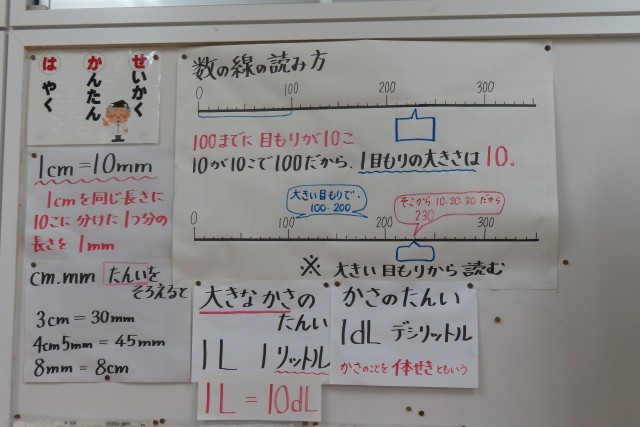 せいかく
かんたん
はやく
数の線の読み方
0 100 200 300
100までに目もりが10こ
10が10こで100だから、1目もりの大きさは10。
大きい目もりで、
100・200
そこから、10・20・30だから
230
0 100 200 300
※ 大きい目もりから読む
1cm=10mm
1cmを同じ長さに
10こに分けた1つ分の
長さを1mm
cm.mm たんいを
そろえると
3cm=30mm
4cm5mm=45mm
8mm=8cm
大きなかさの
たんい
1L 1リットル
1L=10dL
かさのたんい
1dL デシリットル
かさのことを体せきともいう